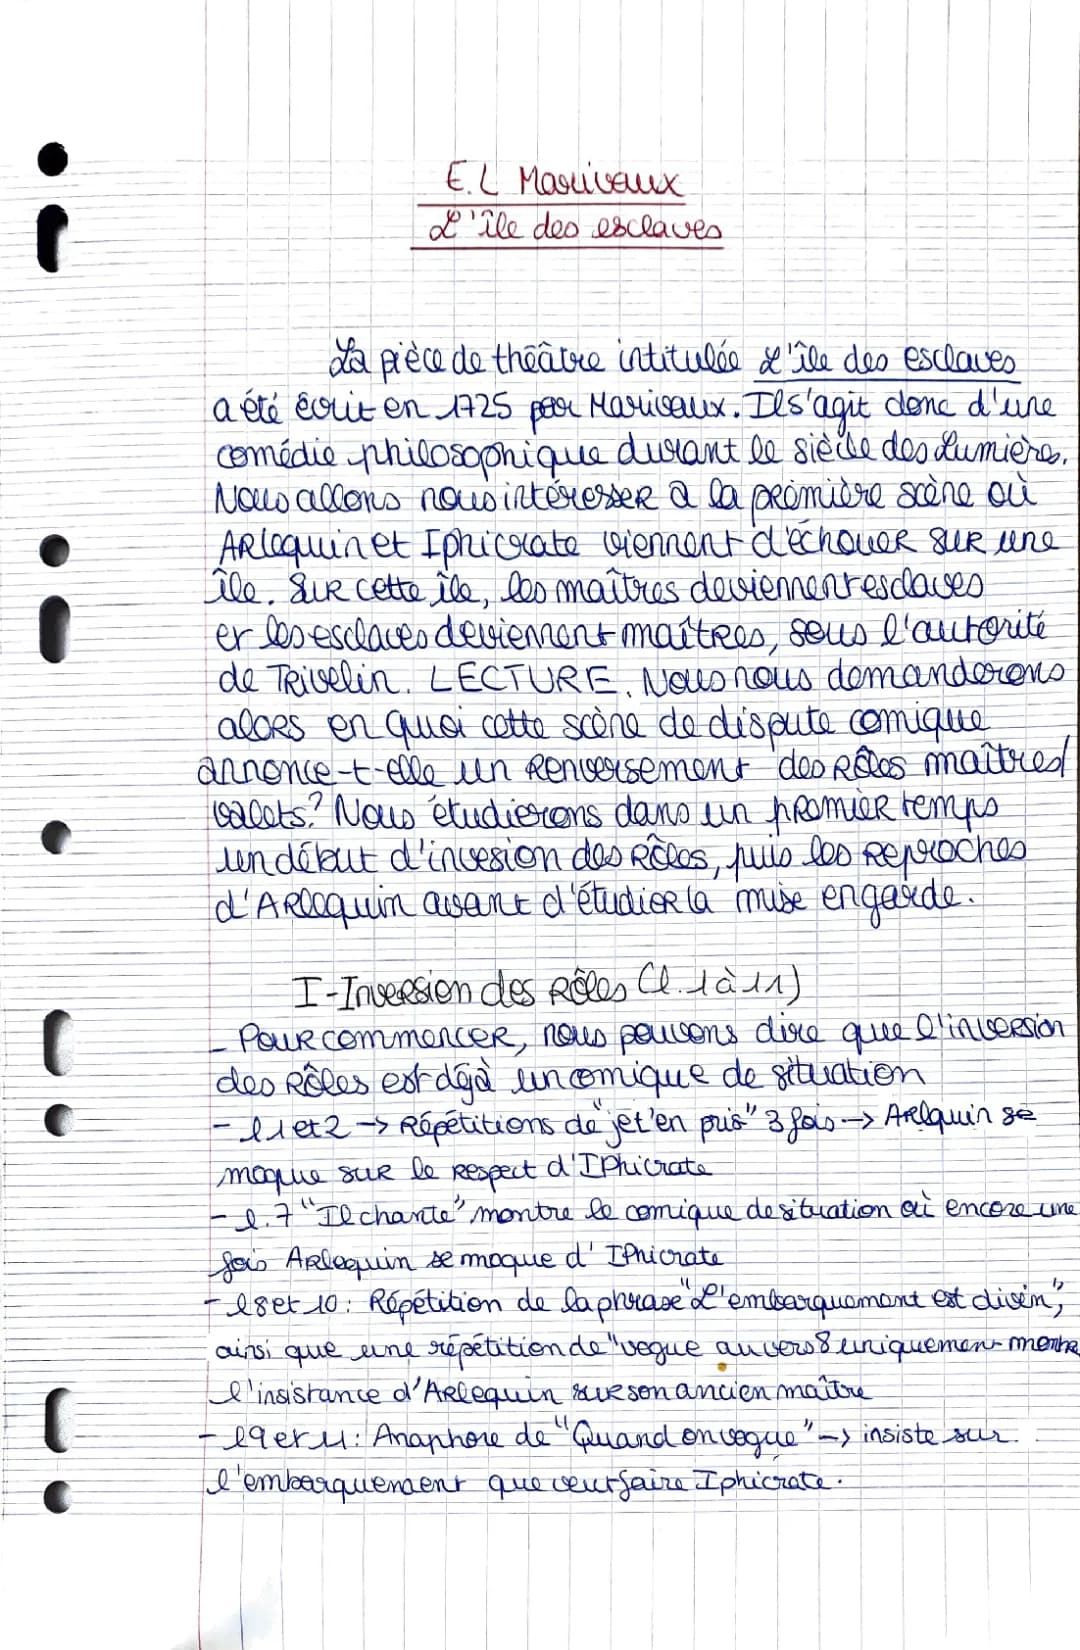 E.L Marivaux
L'île des esclaves
La pièce de théâtre intitulée L'île des esclaves
a été écrit en 1725 par Marivaux. Il s'agit donc d'une
comédie philosophique durant le siècle des Lumières.
Nous allons nous intéresser à la première scène où
Arlequin et Iphicrate viennent d'échouer sur une
île. Sur cette île, les maîtres deviennent esclaves
et les esclaves deviennent maîtres, sous l'autorité
de Trivelin. LECTURE. Nous nous demanderons
alors en quoi cette scène de dispute comique
annonce-t-elle un renversement des rôles maîtres/
valets? Nous étudierons dans un premier temps
un début d'invesion des rôles, puis les reproches
d'Arlequin avant d'étudier la mise en garde.
I-Inversion des rôles (l.1 à 11)
- Pour commencer, nous pouvons dire que l'inversion
des rôles est déjà un comique de situation
- l1 et 2 → Répétitions de "je t'en pris" 3 fois → Arlquin se
moque sur le respect d'Iphicrate
- l.7 "Il chante" montre le comique de situation où encore une
fois Arlequin se moque d' Iphicrate
- l8 et 10: Répétition de la phrase "L'embarquement est divin",
ainsi que une répétition de "vogue au vers 8 uniquement montre
l'insistance d'Arlequin sur son ancien maître
- l9 et 11: Anaphore de "Quand on vogue" → insiste sur
l'embarquement que veut faire Iphicrate.